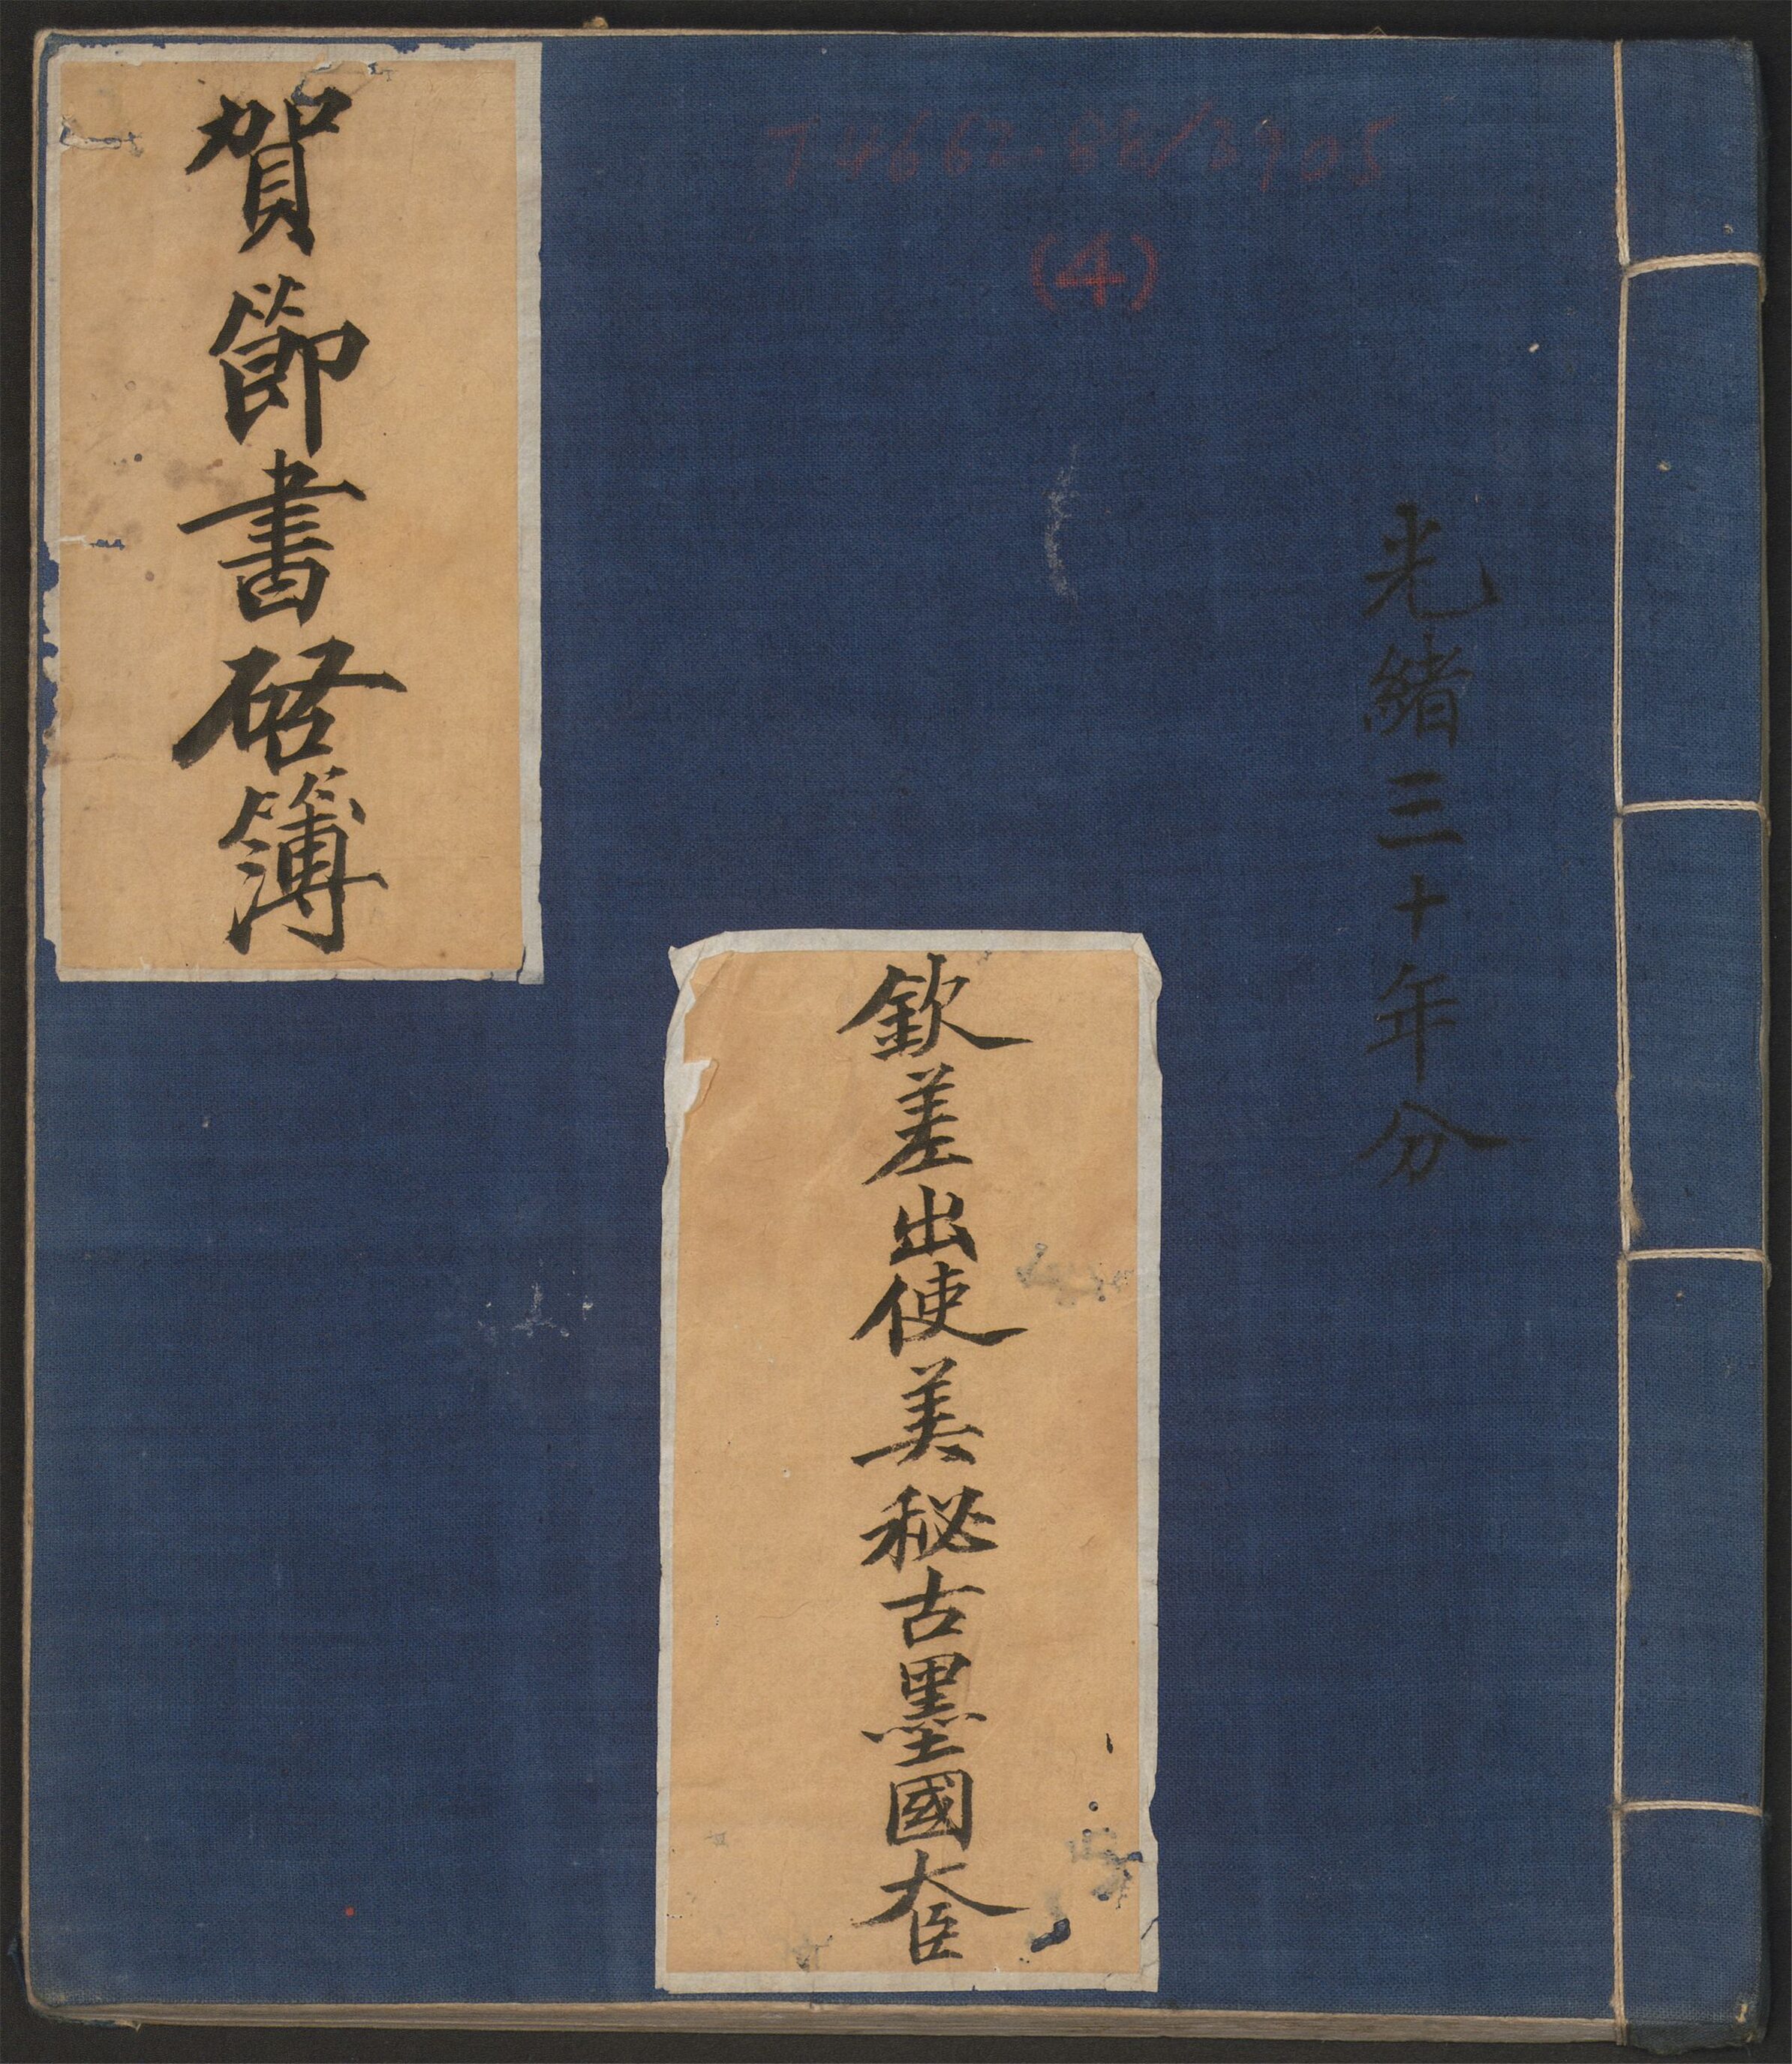 T4662.88/2905
(4)
光緒三十年分
欽差出使美秘古墨國大臣
賀節書啓簿